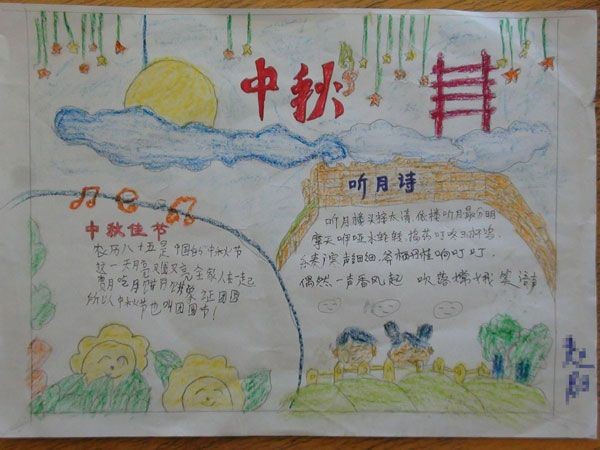 中秋
中秋佳节
农历八十五是中国的中秋节
这一天月亮又又亮,全家人在一起
赏月吃月饼月饼象征团圆
所以中秋节也叫团圆节!
听月诗
听月楼头接太清,依楼听月最分明
摩天咿哑冰轮转,捣药叮咚玉杵
乐奏广寒声细细,斧柯丹桂响叮叮.
偶然一声香风起 吹落嫦娥笑语声